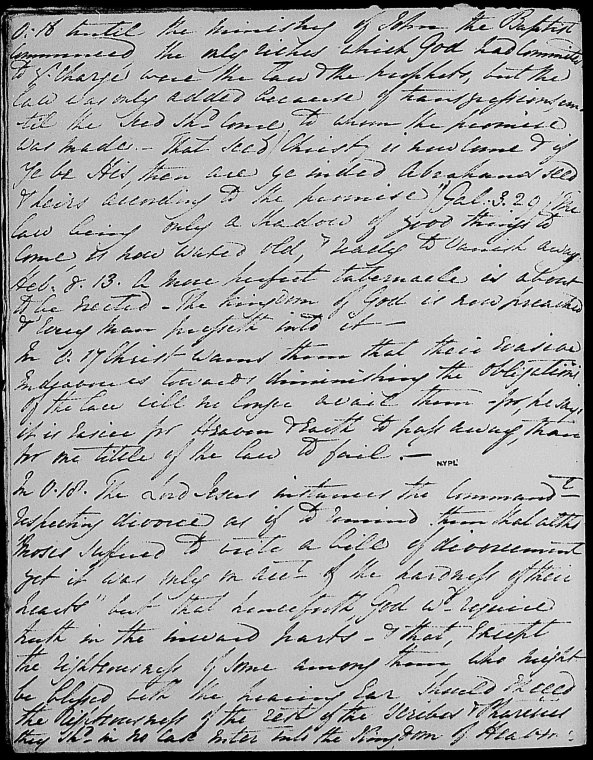 v. 16 until the ministry of John the Baptist
commenced, the only riches which God had committed
to yr. Charge were the Law & the prophets, but the
law was only added because of transgressions un-
til the Seed shd. come, to whom the promise
was made. - That Seed Christ is now come & if
Ye be His, then are ye indeed Abrahams seed
& heirs according to the promise" Gal: 3. 20. The
law being only a shadow of good things to
come, is now waxed old, "ready to vanish away"
Heb. 8. 13. A more perfect tabernacle is about
to be erected - The Kingdom of God is now preached
& Every man presseth into it -
In v. 17 Christ warns them that their Evasive
Endeavours towards diminishing the obligations
of the law will no longer avail them - for he says
it is Easier for Heaven & Earth to pass away, than
for one tittle of the law to fail. -
NYPL
In v. 18. The Lord Jesus instances the Commandt.
respecting divorce as if to remind them that altho
"Moses suffered to write a bill of divorcement
yet it was only on acct. of the hardness of their
hearts" but that henceforth God wd. require
truth in the inward parts - & that, Except
the righteousness of some among them who might
be blessed with the hearing Ear should Exceed
the Righteousness of the rest of the Scribes & Pharisees
they shd. in no Case Enter into the Kingdom of Heaven.